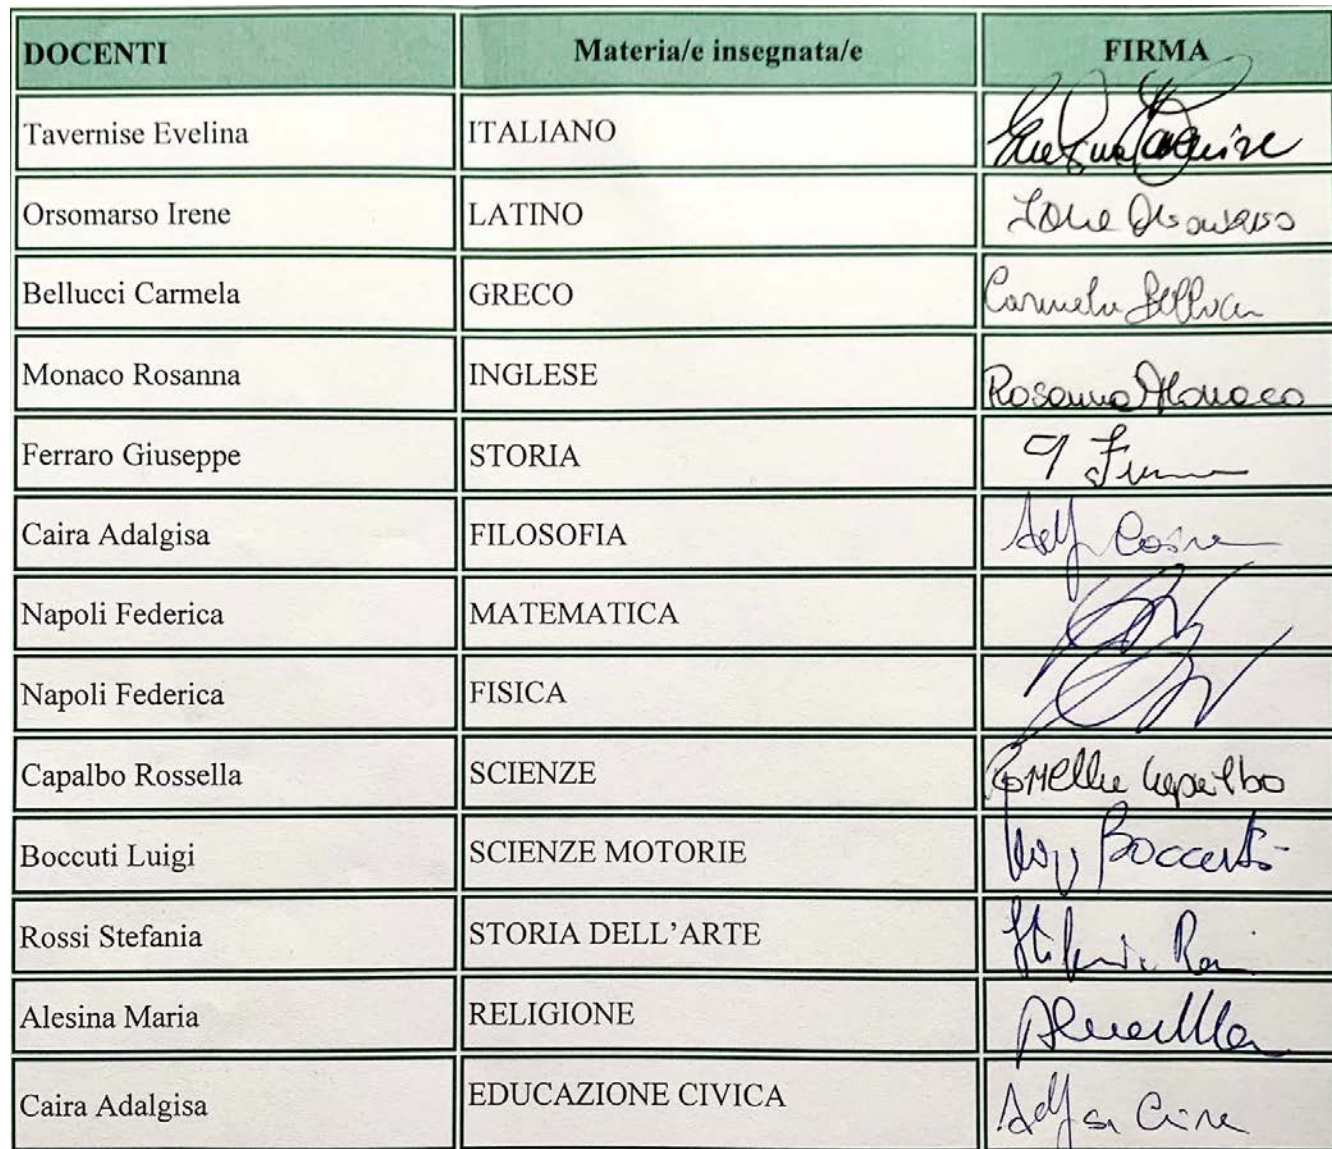 DOCENTI Materia/e insegnata/e FIRMA
Tavernise Evelina ITALIANO
Orsomarso Irene LATINO
Bellucci Carmela GRECO Carmela Bellucci
Monaco Rosanna INGLESE Rosanna Monaco
Ferraro Giuseppe STORIA
Caira Adalgisa FILOSOFIA
Napoli Federica MATEMATICA
Napoli Federica FISICA
Capalbo Rossella SCIENZE Rossella Capalbo
Boccuti Luigi SCIENZE MOTORIE
Rossi Stefania STORIA DELL'ARTE
Alesina Maria RELIGIONE
Caira Adalgisa EDUCAZIONE CIVICA